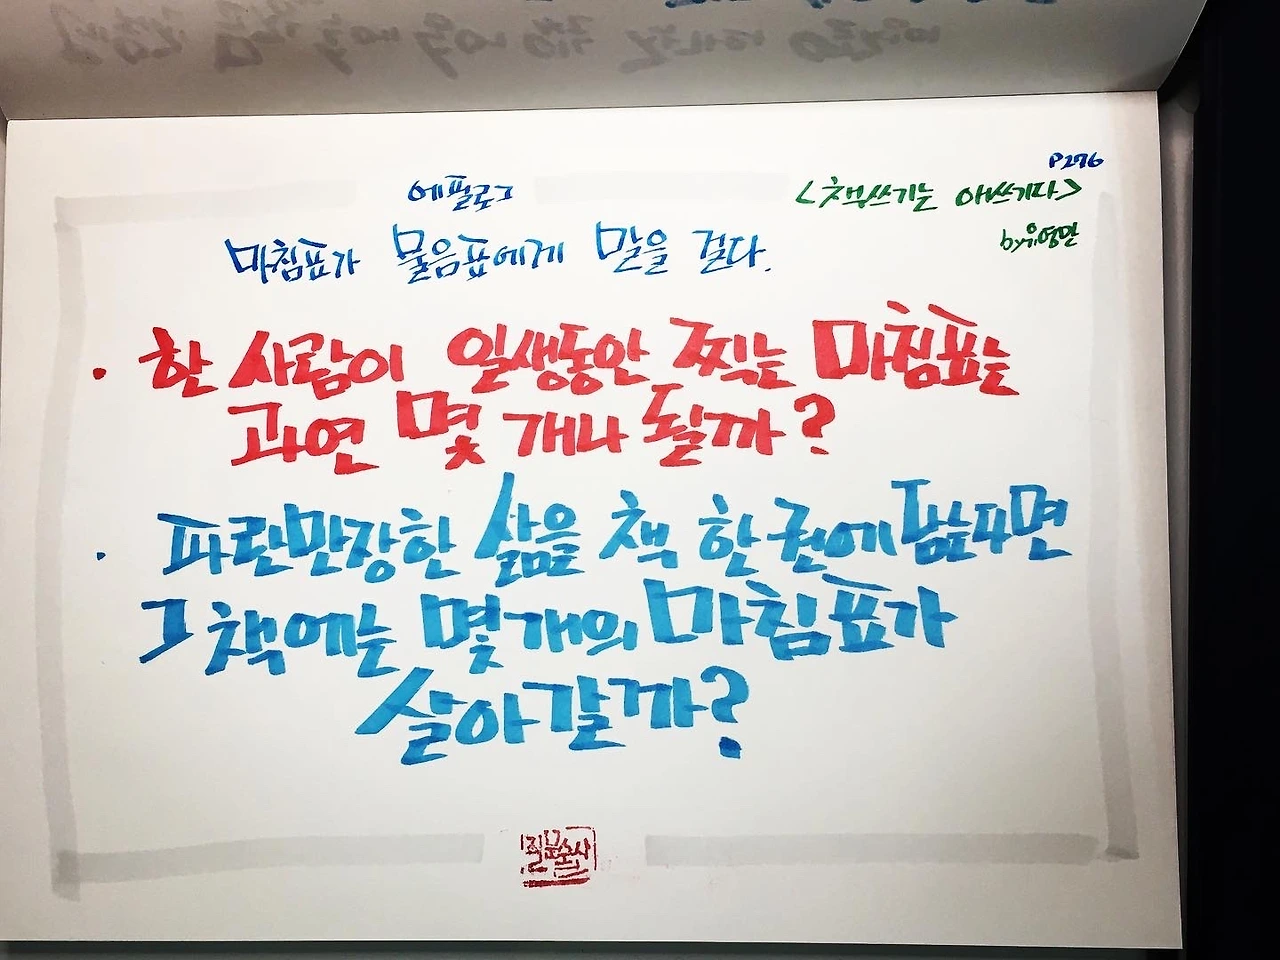 P276
에필로그
<책쓰기는 애쓰기다>
by유영만
마침표가 물음표에게 말을 걸다.
· 한 사람이 일생동안 찍는 마침표는
과연 몇 개나 될까?
· 파란만장한 삶을 책 한 권에 담는다면
그 책에는 몇개의 마침표가
살아갈까?
질문술사